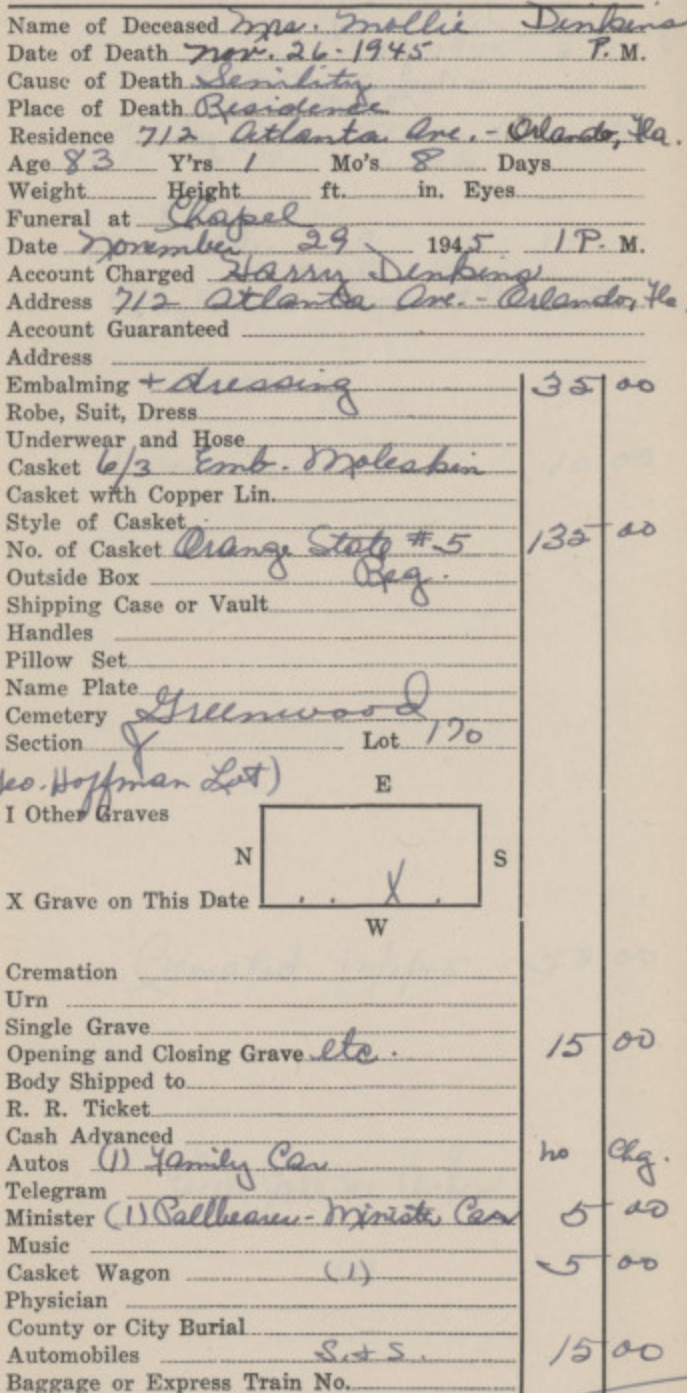 Name of Deceased Mrs. Mollie Dinkins
Date of Death Nov. 26-1945 P. M.
Cause of Death Senility
Place of Death Residence
Residence 712 Atlanta Ave. - Orlando, Fla.
Age 83 Y'rs 1 Mo's 8 Days
Weight Height ft. in. Eyes
Funeral at Chapel
Date November 29 1945 1 P. M.
Account Charged Harry Dinkins
Address 712 Atlanta Ave. - Orlando, Fla.
Account Guaranteed
Address
Embalming + dressing 35 00
Robe, Suit, Dress
Underwear and Hose
Casket 6/3 Emb. Moleskin
Casket with Copper Lin.
Style of Casket
No. of Casket Orange State #5 135 00
Outside Box Reg.
Shipping Case or Vault
Handles
Pillow Set
Name Plate
Cemetery Greenwood
Section Lot 170
Geo. Hoffman Lot)
E
I Other Graves
N S
X Grave on This Date . . X .
W
Cremation
Urn
Single Grave
Opening and Closing Grave etc. 15 00
Body Shipped to
R. R. Ticket
Cash Advanced
Autos (1) Family Car no Chg.
Telegram
Minister (1) Pallbearer - Minister Car 5 00
Music
Casket Wagon (1) 5 00
Physician
County or City Burial
Automobiles S. & S. 15 00
Baggage or Express Train No.